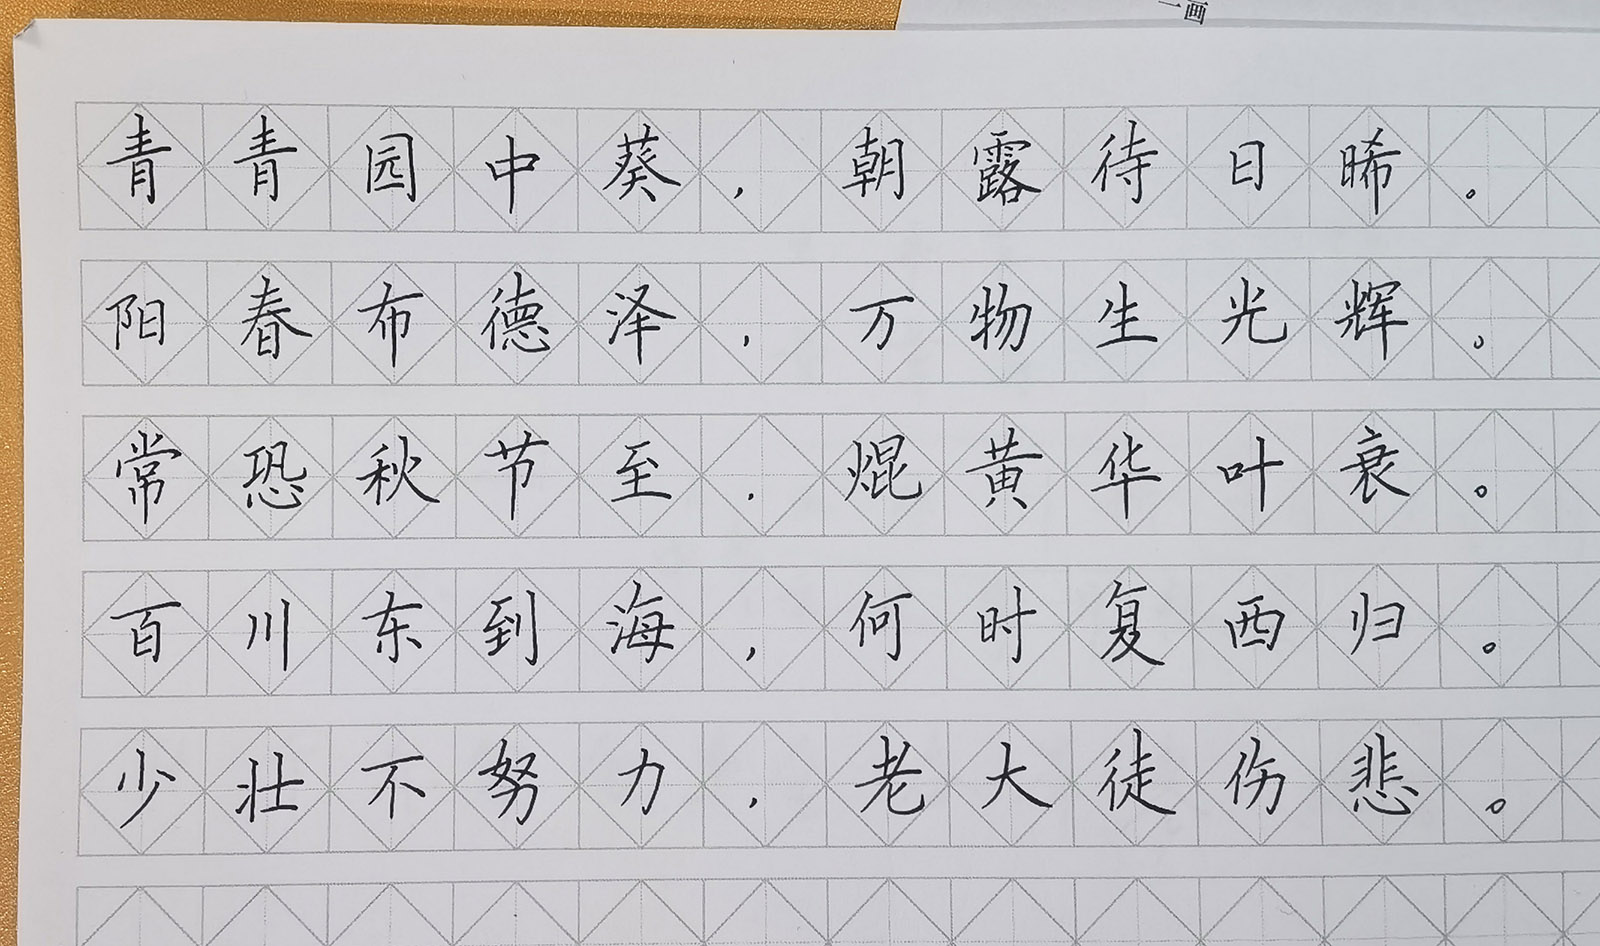 一画
青青园中葵，朝露待日晞。
阳春布德泽，万物生光辉。
常恐秋节至，焜黄华叶衰。
百川东到海，何时复西归。
少壮不努力，老大徒伤悲。